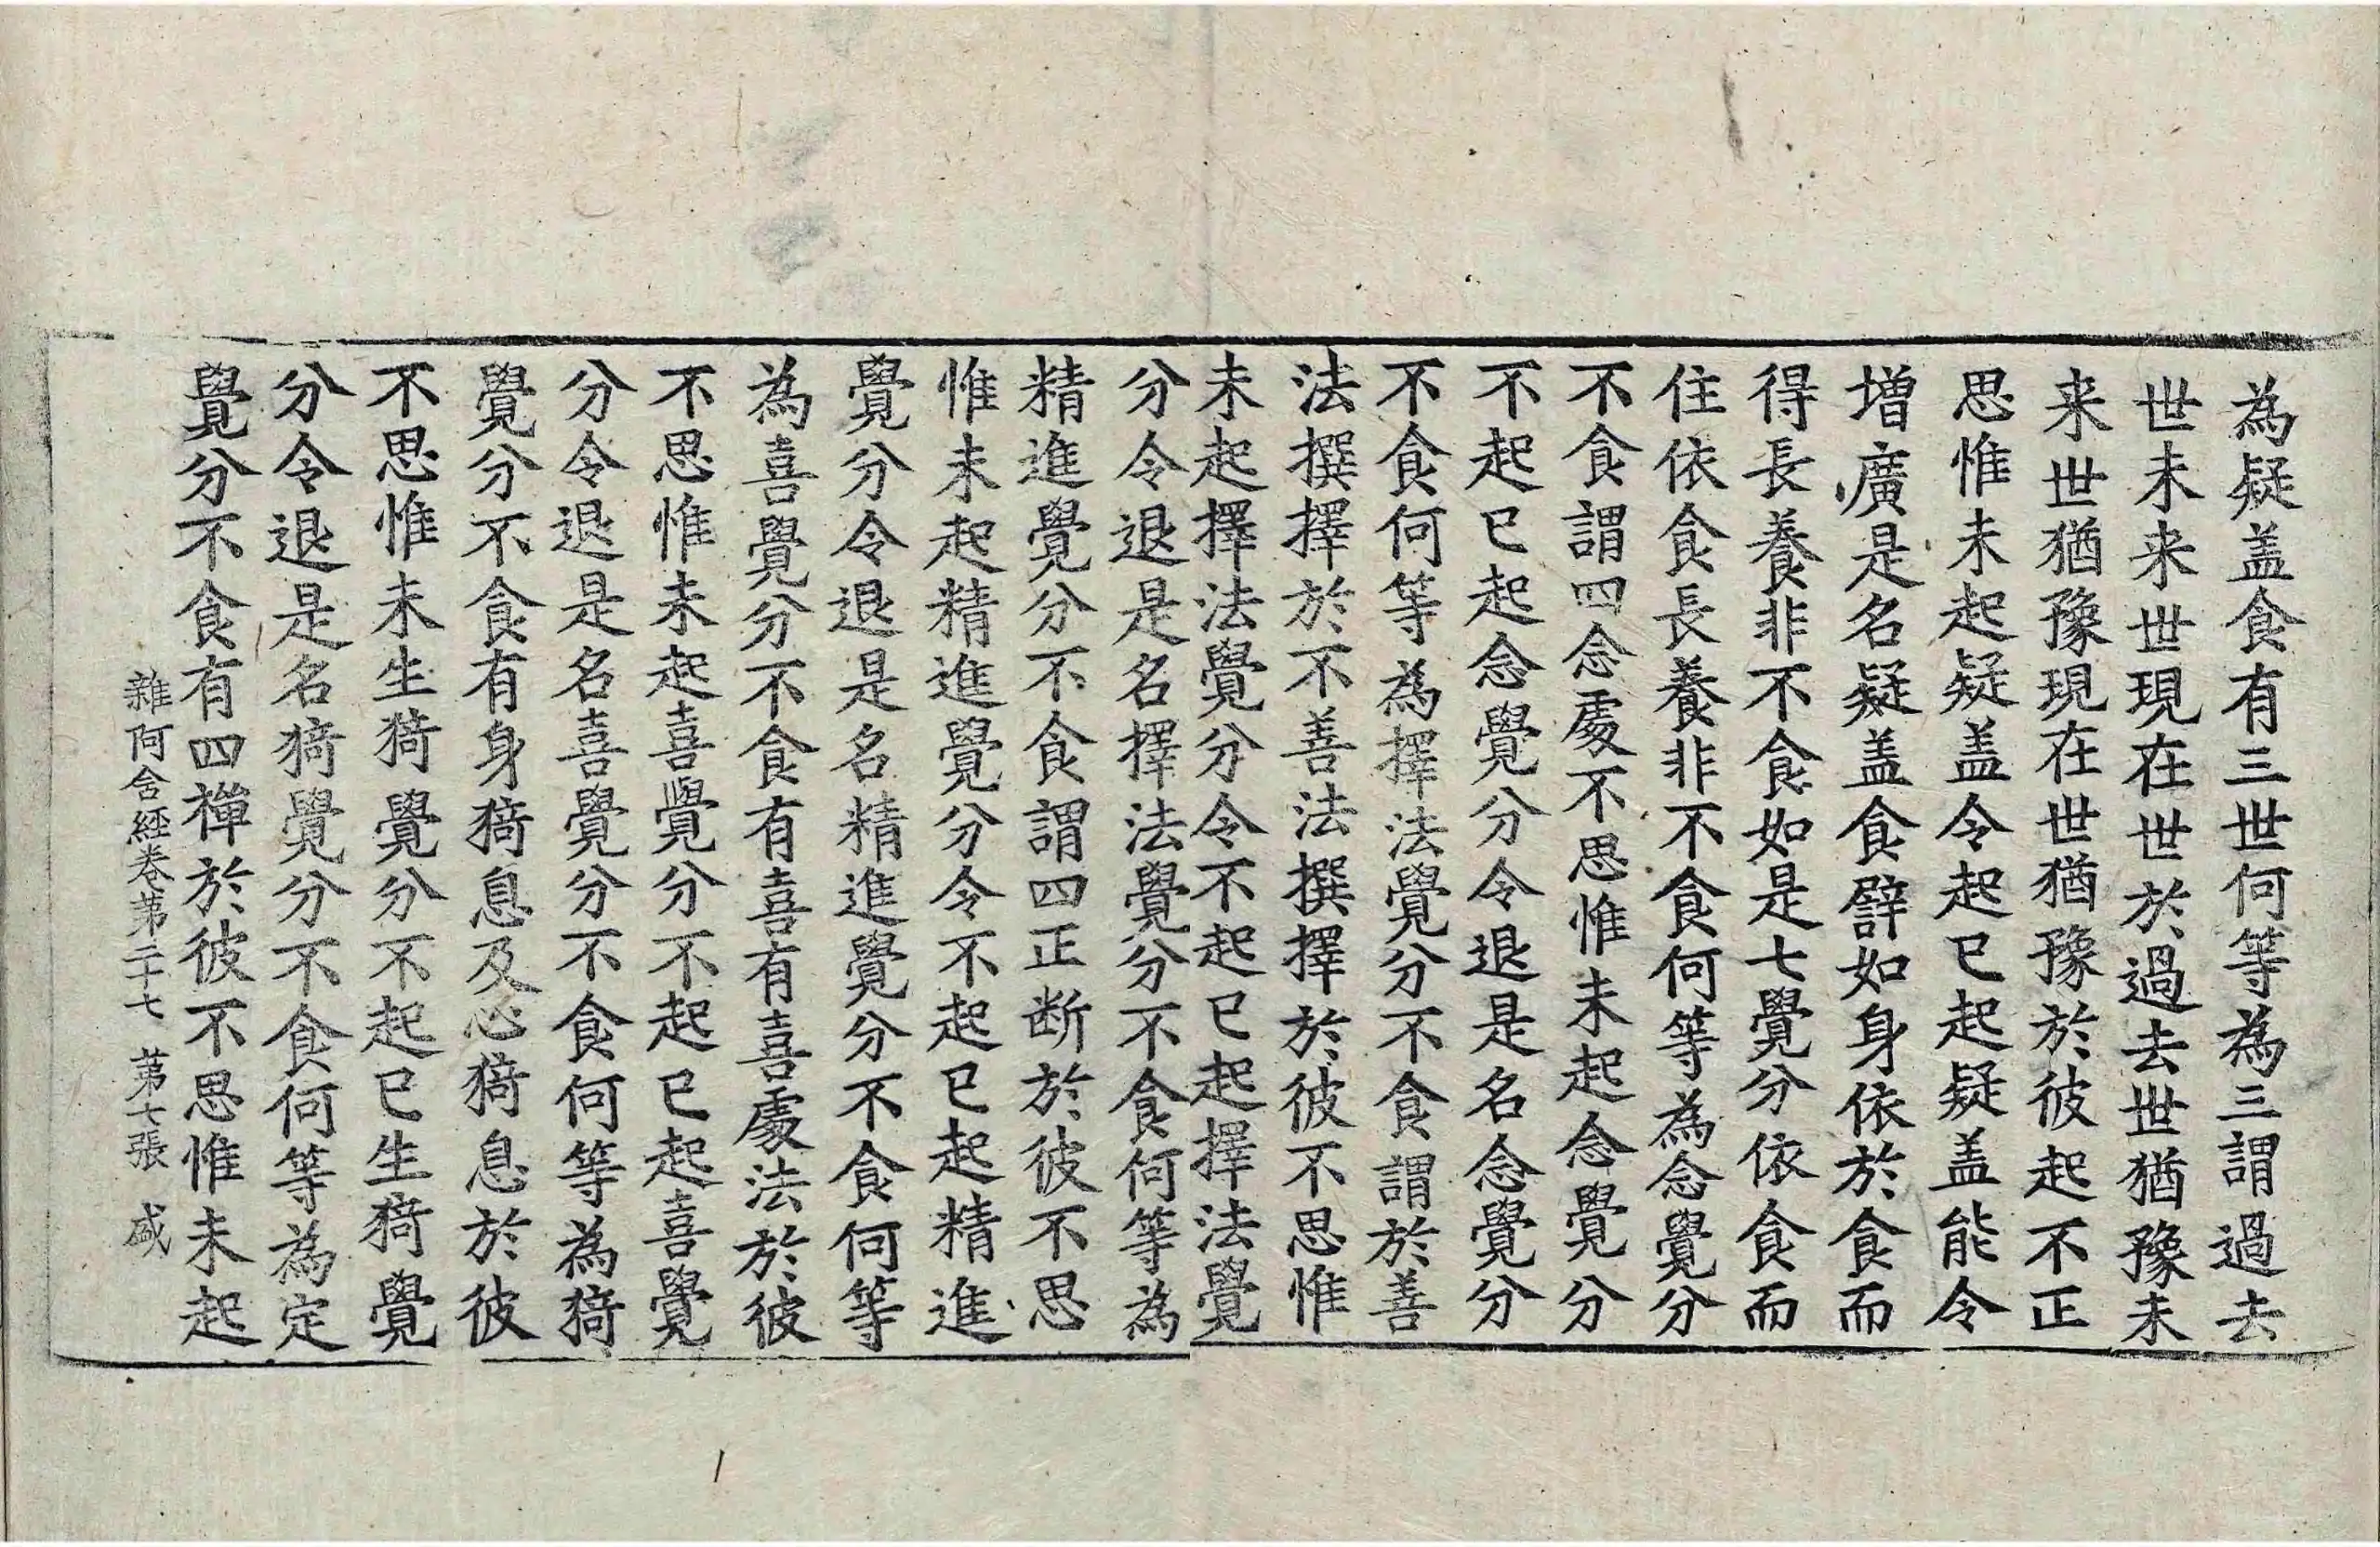 為疑盖食有三世何等為三謂過去
世未来世現在世於過去世猶豫未
来世猶豫現在世猶豫於彼起不正
思惟未起疑盖令起已起疑盖能令
增廣是名疑盖食譬如身依於食而
得長養非不食如是七覺分依食而
住依食長養非不食何等為念覺分
不食謂四念處不思惟未起念覺分
不起已起念覺分令退是名念覺分
不食何等為擇法覺分不食謂於善
法撰擇於不善法撰擇於彼不思惟
未起擇法覺分令不起已起擇法覺
分令退是名擇法覺分不食何等為
精進覺分不食謂四正断於彼不思
惟未起精進覺分令不起已起精進
覺分令退是名精進覺分不食何等
為喜覺分不食有喜有喜處法於彼
不思惟未起喜覺分不起已起喜覺
分令退是名喜覺分不食何等為猗
覺分不食有身猗息及心猗息於彼
不思惟未生猗覺分不起已生猗覺
分令退是名猗覺分不食何等為定
覺分不食有四禪於彼不思惟未起
雜阿含經卷第二十七 第七張 盛